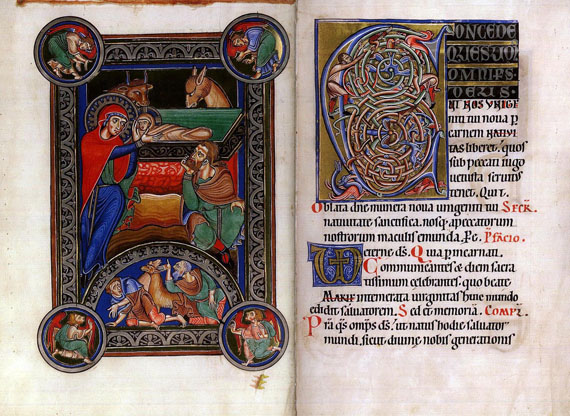 CONCEDE
QESUM
OMNIPS
DEUS.
UT NOS UNIGE
niti tui nova p
carnem NATIVI
TAS liberet. quos
sub peccati iugo
vetusta servitus
tenet. Qui t.
Oblata dne munera nova unigeniti tui SECR.
nativitate sanctifica. nosq. a peccatorum
nostrorum maculis emunda. P.
eterne ds. Quia p incarnati.
Communicantes & diem sacra
tissimum celebrantes. quo beate
MARIE intemerata virginitas huic mundo
edidit salvatorem. Sed et memoria. COMPL.
Pra qs omps ds. ut natus hodie salvator
mundi. sicut divine nobis generationis